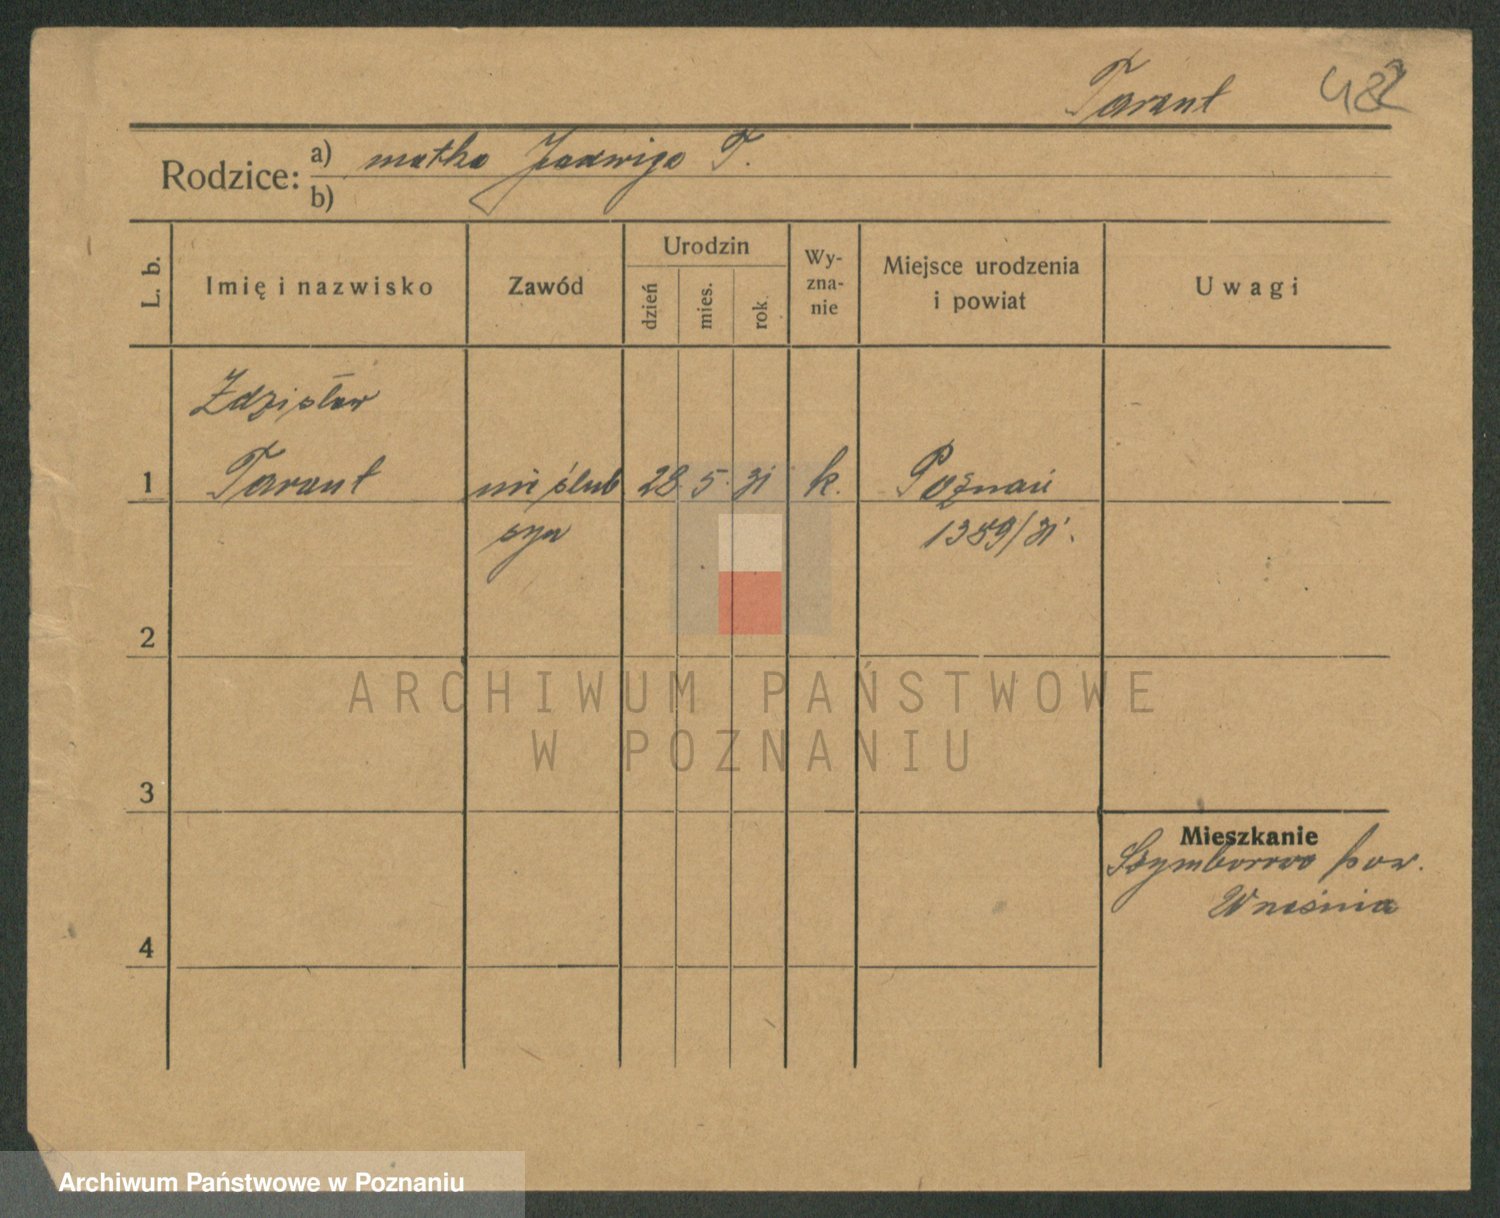 Tarant 482
Rodzice: a) matka Jadwiga T.
b)
L. b.
Imię i nazwisko
Zawód
Urodzin
dzień
mies.
rok
Wy-
zna-
nie
Miejsce urodzenia
i powiat
Uwagi
Zdzisław
1 Tarant nieślub 28 5. 31 k. Poznań
syn 1389/31.
2
3
4
Mieszkanie
Szymborowo pow.
Września
ARCHIWUM PAŃSTWOWE
W POZNANIU
Archiwum Państwowe w Poznaniu